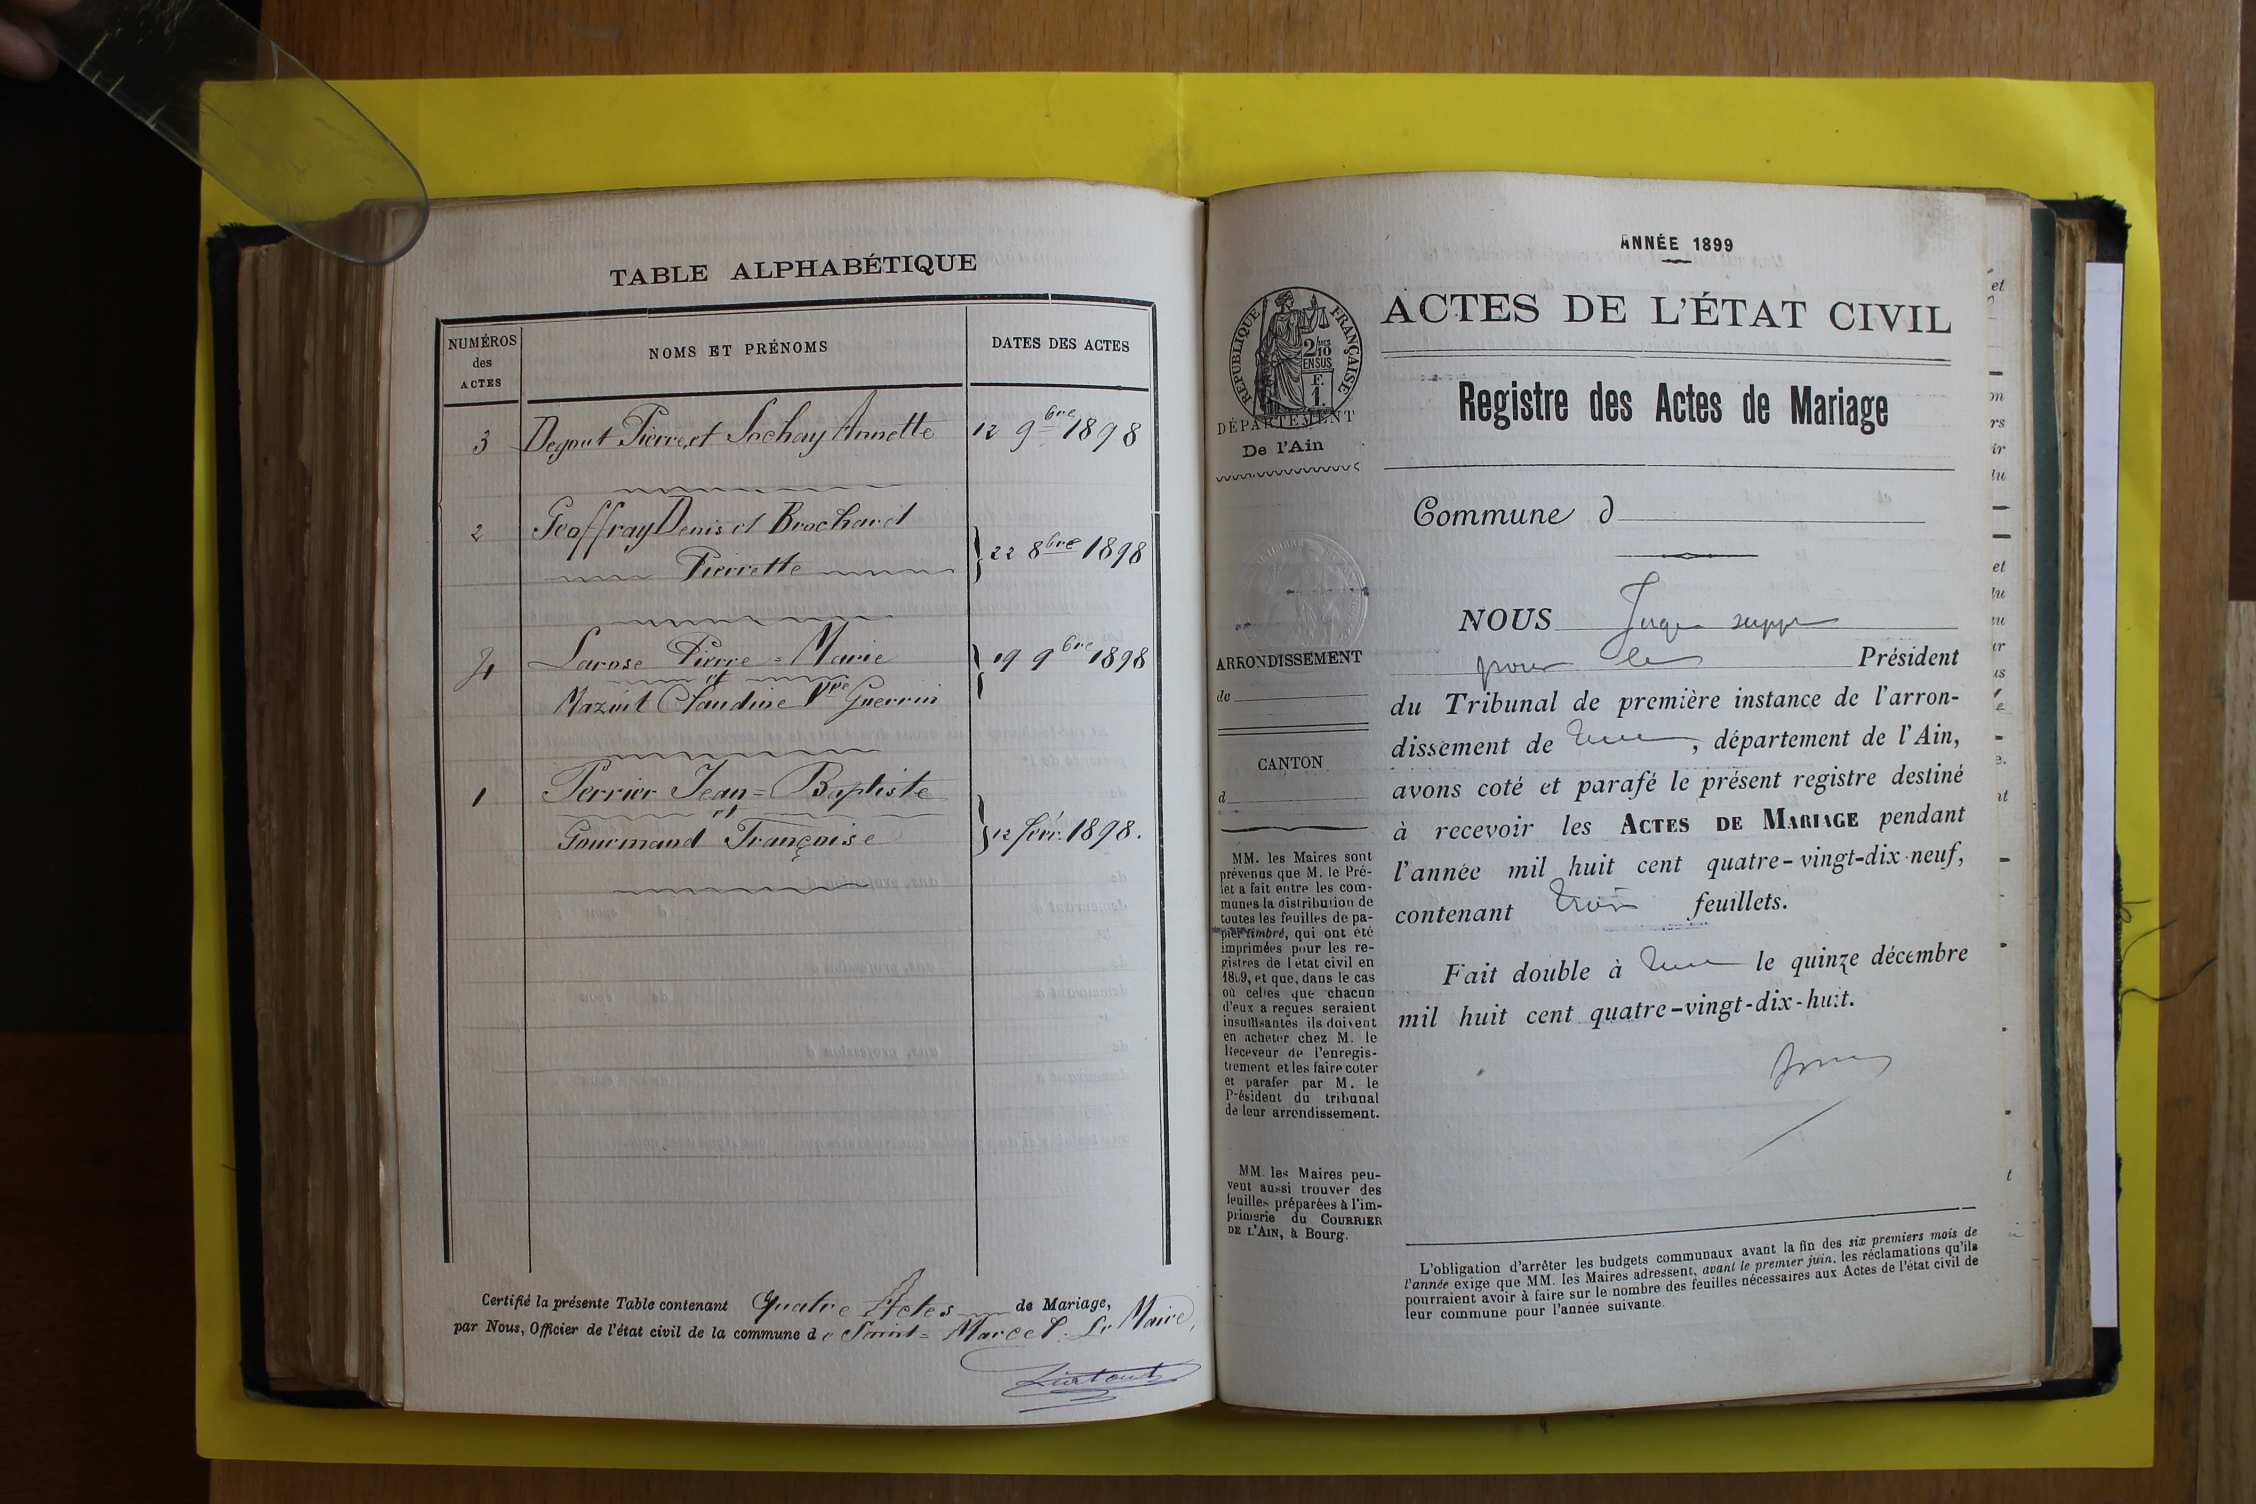 TABLE ALPHABÉTIQUE
NUMÉROS
des
ACTES
NOMS ET PRÉNOMS
DATES DES ACTES
3 Degout Pierre et Sochay Annette 12 9bre 1898
2 Geoffray Denis et Brochard
Pierrette
22 8bre 1898
4 Larose Pierre=Marie
et
Mazuit Claudine Vve Guerrin
19 9bre 1898
1 Perrier Jean=Baptiste
et
Gourmand Françoise
12 févr. 1898.
Certifié la présente Table contenant Quatre Actes de Mariage,
par Nous, Officier de l'état civil de la commune de Saint=Marcel. Le Maire,
ANNÉE 1899
RÉPUBLIQUE FRANÇAISE
2/10 EN SUS
F.
1.
DÉPARTEMENT
De l'Ain
ARRONDISSEMENT
de
CANTON
d
MM. les Maires sont
prévenus que M. le Pré-
fet a fait entre les com-
munes la distribution de
toutes les feuilles de pa-
pier timbré, qui ont été
imprimées pour les re-
gistres de l'état civil en
1899, et que, dans le cas
où celles que chacun
d'eux a reçues seraient
insuffisantes ils doivent
en acheter chez M. le
Receveur de l'enregis-
trement et les faire coter
et parafer par M. le
Président du tribunal
de leur arrondissement.
MM. les Maires peu-
vent aussi trouver des
feuilles préparées à l'im-
primerie du COURRIER
DE L'AIN, à Bourg.
ACTES DE L'ÉTAT CIVIL
Registre des Actes de Mariage
Commune d
NOUS Juge supp
pour le Président
du Tribunal de première instance de l'arron-
dissement de , département de l'Ain,
avons coté et parafé le présent registre destiné
à recevoir les ACTES DE MARIAGE pendant
l'année mil huit cent quatre-vingt-dix-neuf,
contenant trois feuillets.
Fait double à le quinze décembre
mil huit cent quatre-vingt-dix-huit.
L'obligation d'arrêter les budgets communaux avant la fin des six premiers mois de
l'année exige que MM. les Maires adressent, avant le premier juin, les réclamations qu'ils
pourraient avoir à faire sur le nombre des feuilles nécessaires aux Actes de l'état civil de
leur commune pour l'année suivante.